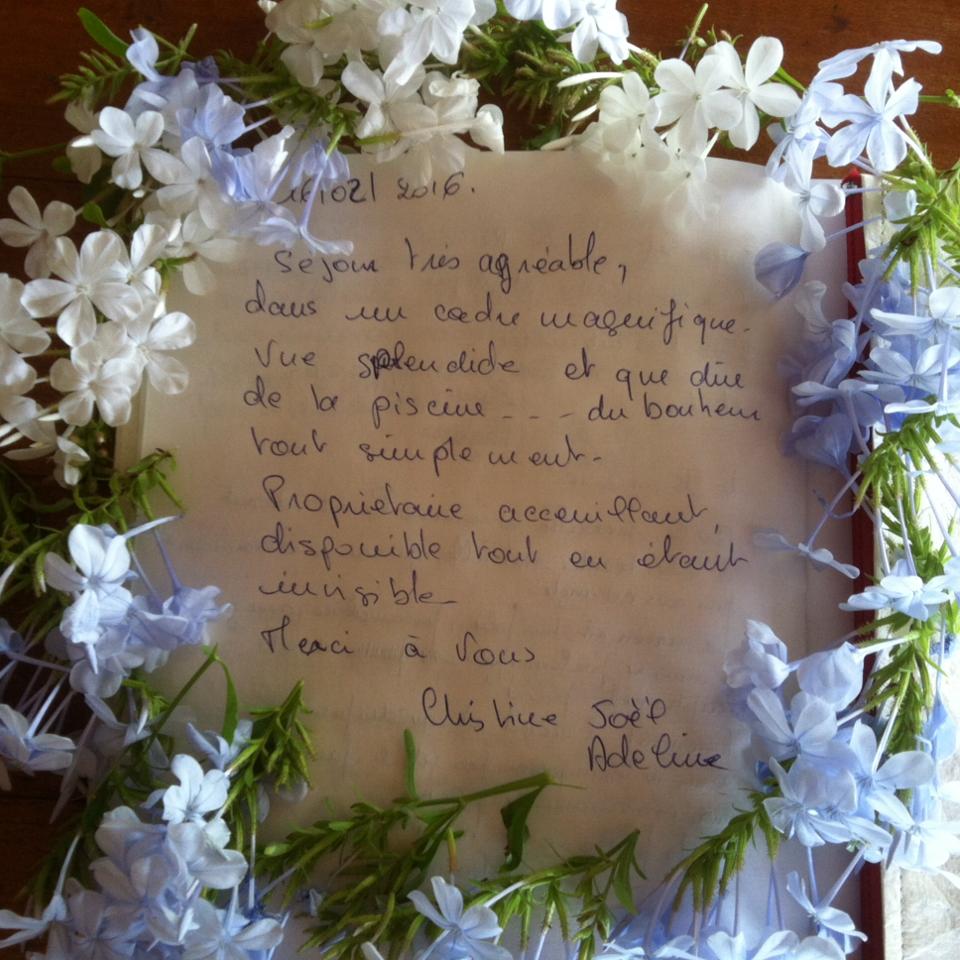 16/02/2016.
Séjour très agréable,
dans un cadre magnifique.
Vue splendide et que dire
de la piscine --- du bonheur
tout simplement.
Propriétaire acceuillant,
disponible tout en étant
invisible
Merci à Vous
Christine Joël
Adeline